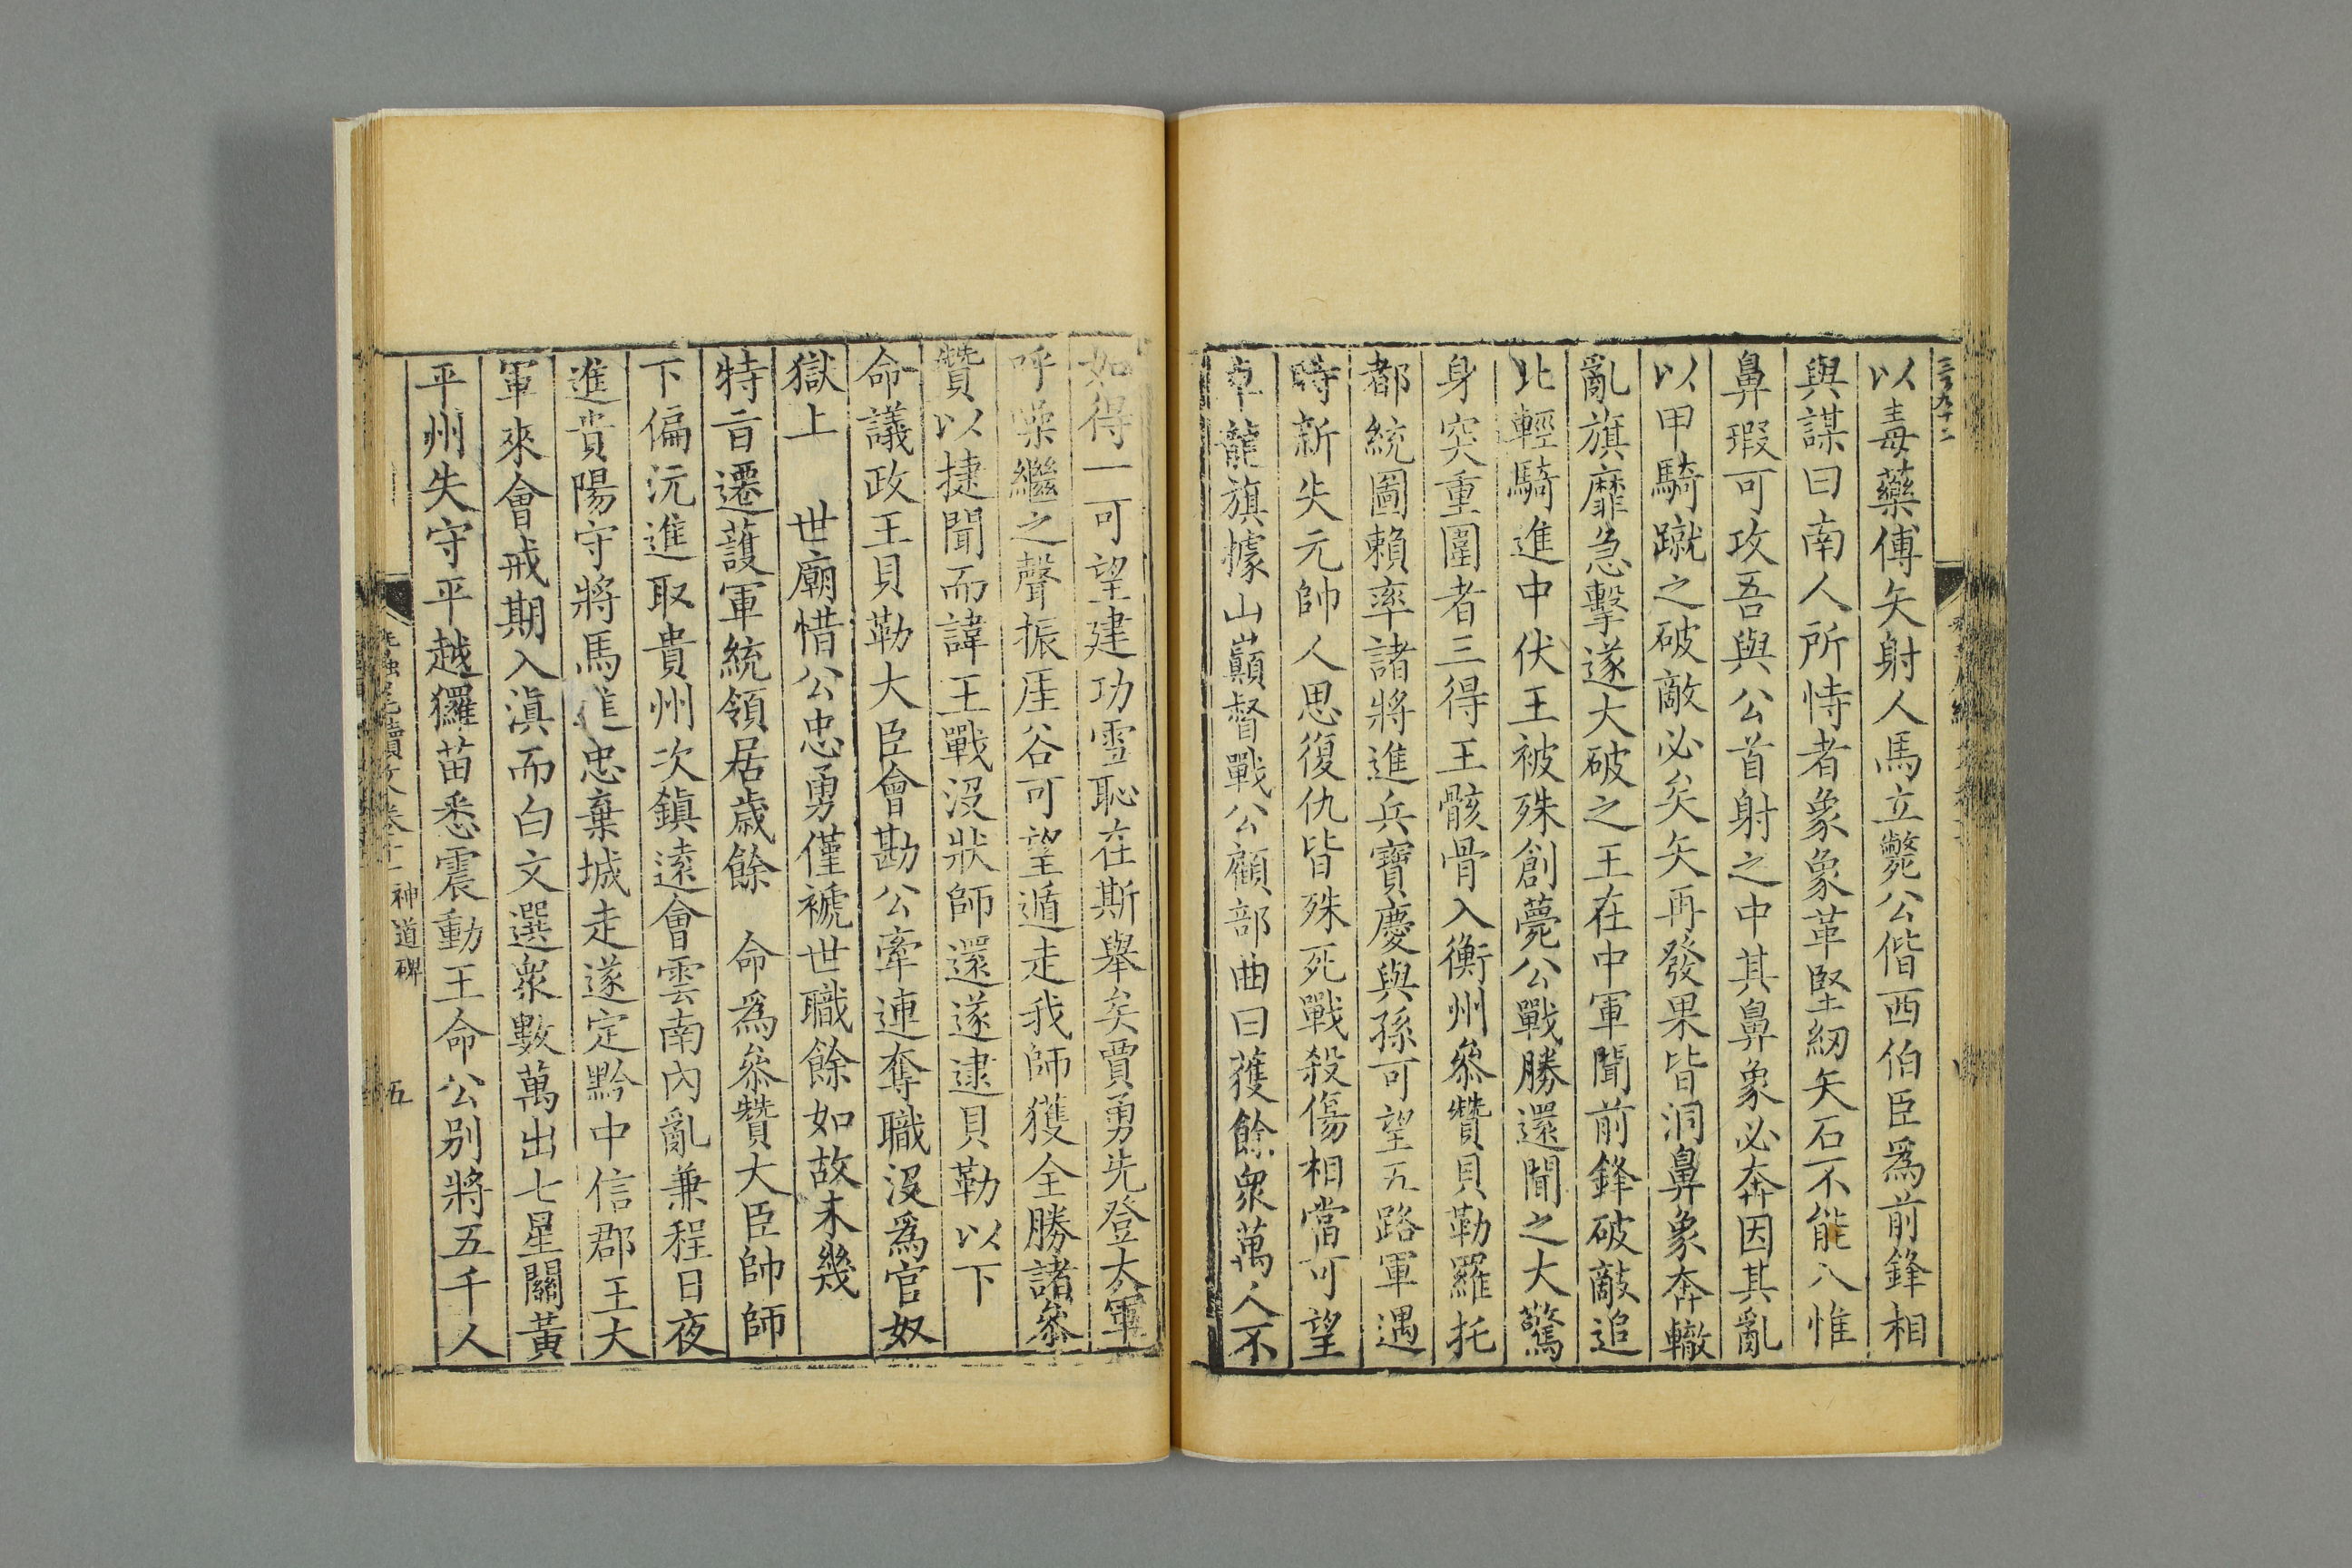 三百九十二
以毒藥傅矢射人馬立斃公偕西伯臣爲前鋒相
與謀曰南人所恃者象象革堅紉矢石不能入惟
鼻瑕可攻吾與公首射之中其鼻象必奔因其亂
以甲騎蹴之破敵必矣矢再發果皆洞鼻象奔轍
亂旗靡急擊遂大破之王在中軍聞前鋒破敵追
北輕騎進中伏王被殊創薨公戰勝還聞之大驚
身突重圍者三得王骸骨入衡州叅贊貝勒羅托
都統圖賴率諸將進兵寶慶與孫可望五路軍遇
時新失元帥人思復仇皆殊死戰殺傷相當可望
卓龍旗據山巔督戰公顧部曲曰獲餘衆萬人不
如得一可望建功雪恥在斯舉矣賈勇先登大軍
呼噪繼之聲振厓谷可望遁走我師獲全勝諸叅
贊以捷聞而諱王戰沒狀師還遂逮貝勒以下
命議政王貝勒大臣會勘公牽連奪職沒爲官奴
獄上 世廟惜公忠勇僅褫世職餘如故未幾
特旨遷護軍統領居歲餘 命爲叅贊大臣帥師
下偏沅進取貴州次鎮遠會雲南內亂兼程日夜
進貴陽守將馬進忠棄城走遂定黔中信郡王大
軍來會戒期入滇而白文選衆數萬出七星關黃
平州失守平越玀苗悉震動王命公別將五千人
卷十一 神道碑
五